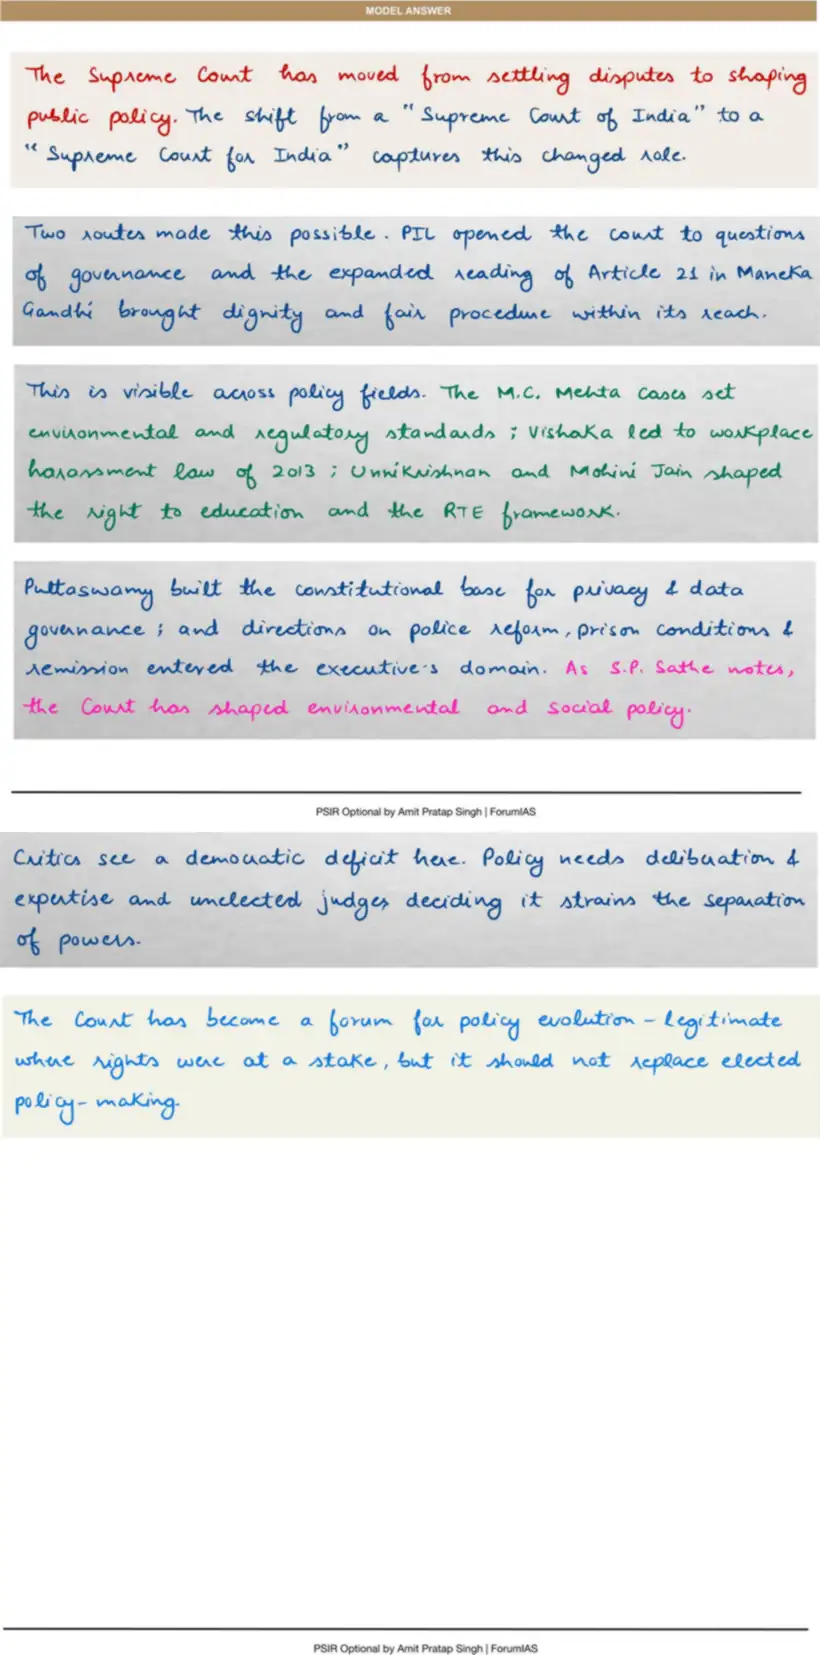 MODEL ANSWER
The Supreme Court has moved from settling disputes to shaping
public policy. The shift from a "Supreme Court of India" to a
"Supreme Court for India" captures this changed role.
Two routes made this possible. PIL opened the court to questions
of governance and the expanded reading of Article 21 in Maneka
Gandhi brought dignity and fair procedure within its reach.
This is visible across policy fields. The M.C. Mehta cases set
environmental and regulatory standards ; Vishaka led to workplace
harassment law of 2013 ; Unnikrishnan and Mohini Jain shaped
the right to education and the RTE framework.
Puttaswamy built the constitutional base for privacy & data
governance ; and directions on police reform, prison conditions &
remission entered the executive's domain. As S.P. Sathe notes,
the Court has shaped environmental and social policy.
PSIR Optional by Amit Pratap Singh | ForumIAS
Critics see a democratic deficit here. Policy needs deliberation &
expertise and unelected judges deciding it strains the separation
of powers.
The Court has become a forum for policy evolution - legitimate
where rights were at a stake, but it should not replace elected
policy-making.
PSIR Optional by Amit Pratap Singh | ForumIAS